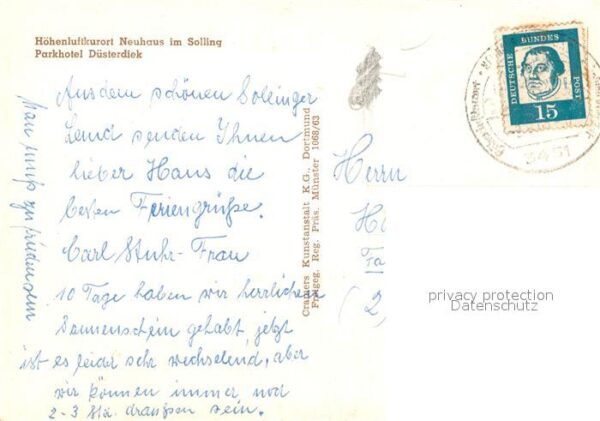 Höhenluftkurort Neuhaus im Solling
Parkhotel Düsterdiek
Aus dem schönen Sollinger
Land senden Ihnen
lieber Hans die
besten Feriengrüße.
Carl Stuhr-Frau
10 Tage haben wir herrlichen
Sonnenschein gehabt, jetzt
ist es leider sehr wechselend, aber
wir können immer noch
2-3 Std. draußen sein.
man muß zufrieden sein
Cramers Kunstanstalt K.G., Dortmund
Freigeg. Reg. Präs. Münster 1068/63
Herrn
H
Ta
(2
DEUTSCHE BUNDES POST
15
3451
privacy protection
Datenschutz